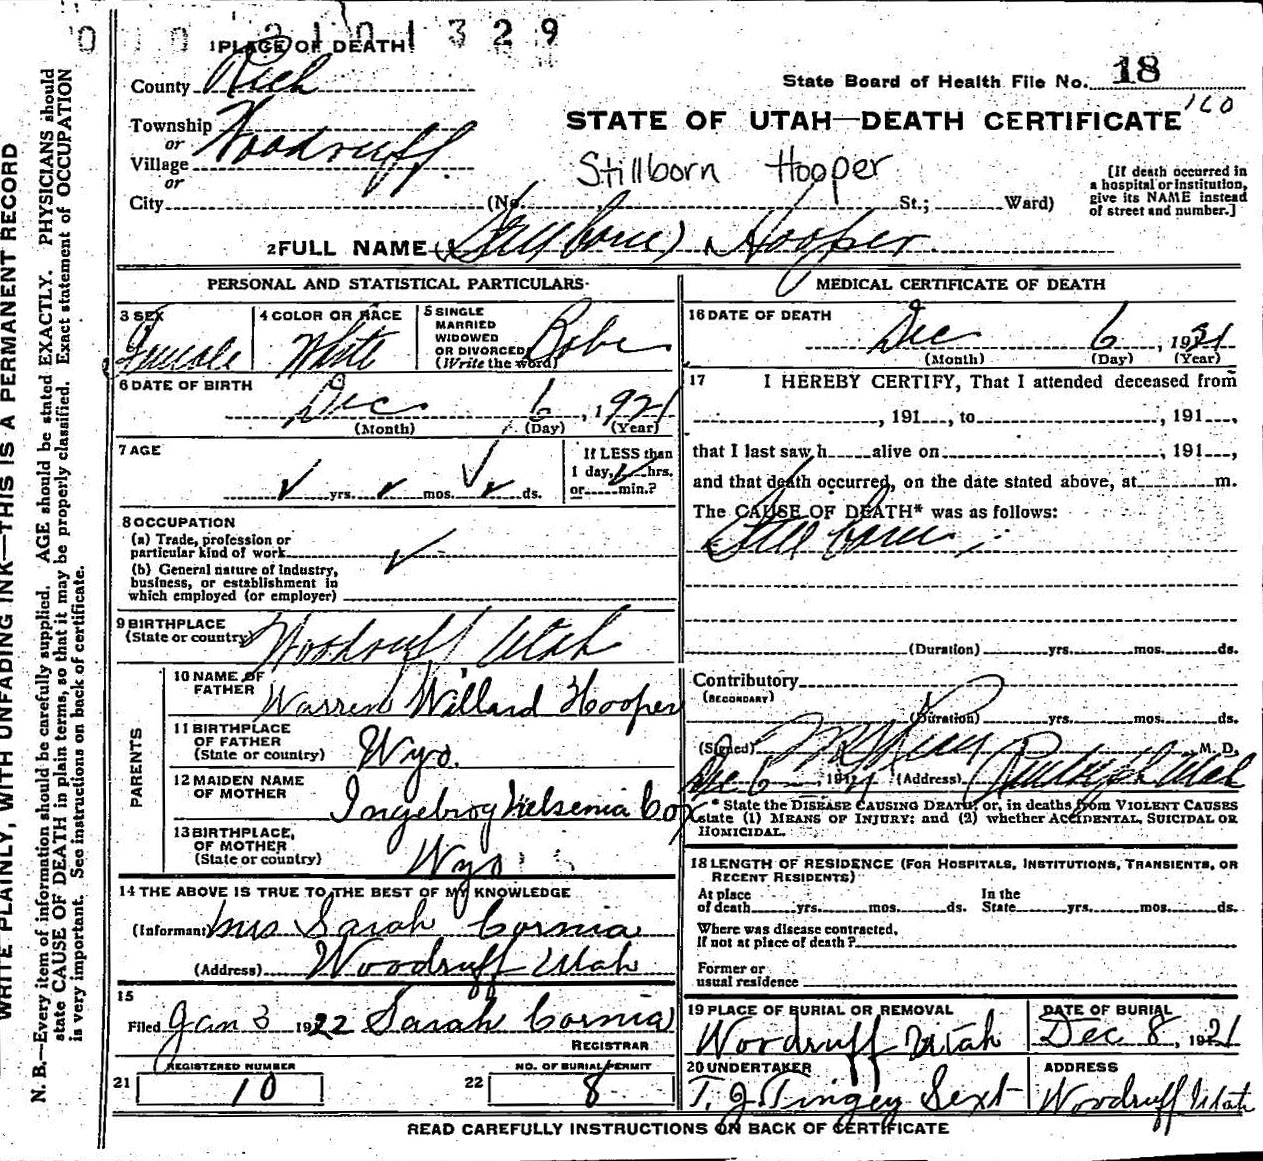 0 10 2101329
1 PLACE OF DEATH
County Rich
State Board of Health File No. 18
160
Township
or
Village Woodruff
or
STATE OF UTAH—DEATH CERTIFICATE
Stillborn Hooper
City (No. St.; Ward)
[If death occurred in
a hospital or institution,
give its NAME instead
of street and number.]
2 FULL NAME (Still born) Hooper
PERSONAL AND STATISTICAL PARTICULARS
3 SEX Female
4 COLOR OR RACE White
5 SINGLE
MARRIED
WIDOWED
OR DIVORCED
(Write the word) Babe
6 DATE OF BIRTH
Dec 6, 1921
(Month) (Day) (Year)
7 AGE
yrs. mos. ds.
If LESS than
1 day, hrs.
or min.?
8 OCCUPATION
(a) Trade, profession or
particular kind of work
(b) General nature of industry,
business, or establishment in
which employed (or employer)
9 BIRTHPLACE
(State or country) Woodruff Utah
PARENTS
10 NAME OF
FATHER Warren Willard Hooper
11 BIRTHPLACE
OF FATHER
(State or country) Wyo.
12 MAIDEN NAME
OF MOTHER Ingebroy Nelsenia Cox
13 BIRTHPLACE,
OF MOTHER
(State or country) Wyo
14 THE ABOVE IS TRUE TO THE BEST OF MY KNOWLEDGE
(Informant) Mrs Sarah Cornia
(Address) Woodruff Utah
15
Filed Jan 3 1922 Sarah Cornia
REGISTRAR
REGISTERED NUMBER
21 10
NO. OF BURIAL PERMIT
22 8
MEDICAL CERTIFICATE OF DEATH
16 DATE OF DEATH
Dec 6, 1921
(Month) (Day) (Year)
17 I HEREBY CERTIFY, That I attended deceased from
, 191 , to , 191 ,
that I last saw h alive on , 191 ,
and that death occurred, on the date stated above, at m.
The CAUSE OF DEATH* was as follows:
Still born
(Duration) yrs. mos. ds.
Contributory
(SECONDARY)
(Duration) yrs. mos. ds.
(Signed) , M. D.
Dec 6 1921 (Address) Randolph Utah
* State the DISEASE CAUSING DEATH, or, in deaths from VIOLENT CAUSES
state (1) MEANS OF INJURY; and (2) whether ACCIDENTAL, SUICIDAL OR
HOMICIDAL.
18 LENGTH OF RESIDENCE (FOR HOSPITALS, INSTITUTIONS, TRANSIENTS, OR
RECENT RESIDENTS)
At place
of death yrs. mos. ds.
In the
State yrs. mos. ds.
Where was disease contracted,
if not at place of death?
Former or
usual residence
19 PLACE OF BURIAL OR REMOVAL
Woodruff Utah
DATE OF BURIAL
Dec 8, 1921
20 UNDERTAKER
T. J. Tingey Sext
ADDRESS
Woodruff Utah
READ CAREFULLY INSTRUCTIONS ON BACK OF CERTIFICATE
WRITE PLAINLY, WITH UNFADING INK—THIS IS A PERMANENT RECORD
N. B.—Every item of information should be carefully supplied. AGE should be stated EXACTLY. PHYSICIANS should
state CAUSE OF DEATH in plain terms, so that it may be properly classified. Exact statement of OCCUPATION
is very important. See instructions on back of certificate.